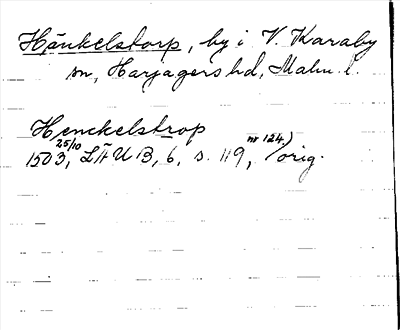 Hänkelstorp, by i V. Karaby
sn, Harjagers hd, Malm. l.
Henckelstrop
1503 25/10, LÄUB, 6, s. 119, nr 124) orig.